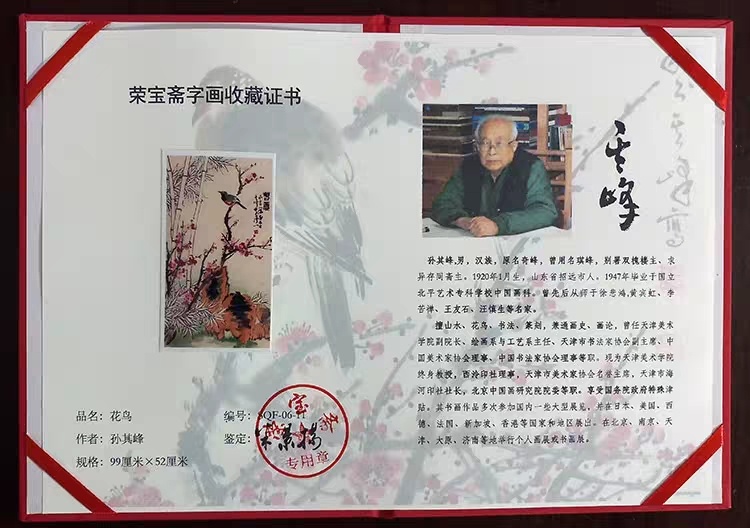 荣宝斋字画收藏证书
品名：花鸟
编号：SQF-06-11
作者：孙其峰
鉴定：
规格：99厘米×52厘米
宝
斋
专用章
其峰
孙其峰,男，汉族，原名奇峰，曾用名琪峰，别署双槐楼主、求
异存同斋主。1920年1月生，山东省招远市人。1947年毕业于国立
北平艺术专科学校中国画科。曾先后从师于徐悲鸿,黄宾虹、李
苦禅、王友石、汪慎生等名家。
擅山水、花鸟、书法、篆刻，兼通画史、画论，曾任天津美术
学院副院长、绘画系与工艺系主任、天津市书法家协会副主席、中
国美术家协会理事、中国书法家协会理事等职。现为天津美术学院
终身教授，西泠印社理事，天津市美术家协会名誉主席，天津市海
河印社社长。北京中国画研究院院委等职。享受国务院政府特殊津
贴。其书画作品多次参加国内一些大型展见，并在日本、美国、西
德、法国、新加坡、香港等国家和地区展出。在北京、南京、天
津、大原、济南等地举行个人画展或书画展。